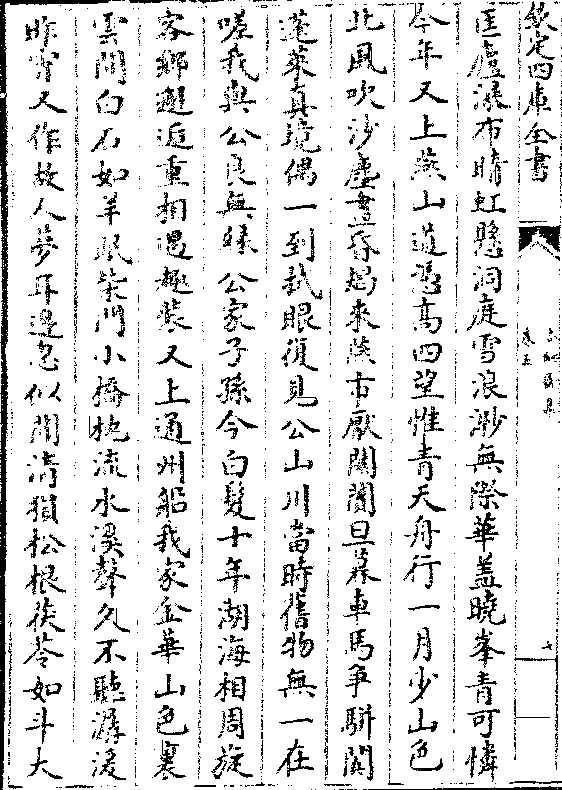 欽定四庫全書
卷五
七
匡廬瀑布晴虹懸洞庭雪浪渺無際華盖曉峯青可憐
今年又上燕山道憑高四望惟青天舟行一月少山色
北風吹沙塵晝昏朅來燕市厭闤闠旦暮車馬爭駢闐
蓬萊真境偶一到拭眼復見公山川當時舊物無一在
嗟我與公良無緣公家子孫今白髮十年湖海相周旋
客鄉邂逅重相遇趣裝又上通州船我家金華山色裏
雲間白石如羊眠柴門小橋抱流水溪聲久不聽潺湲
昨宵又作故人夢耳邊忽似聞清猿松根茯苓如斗大